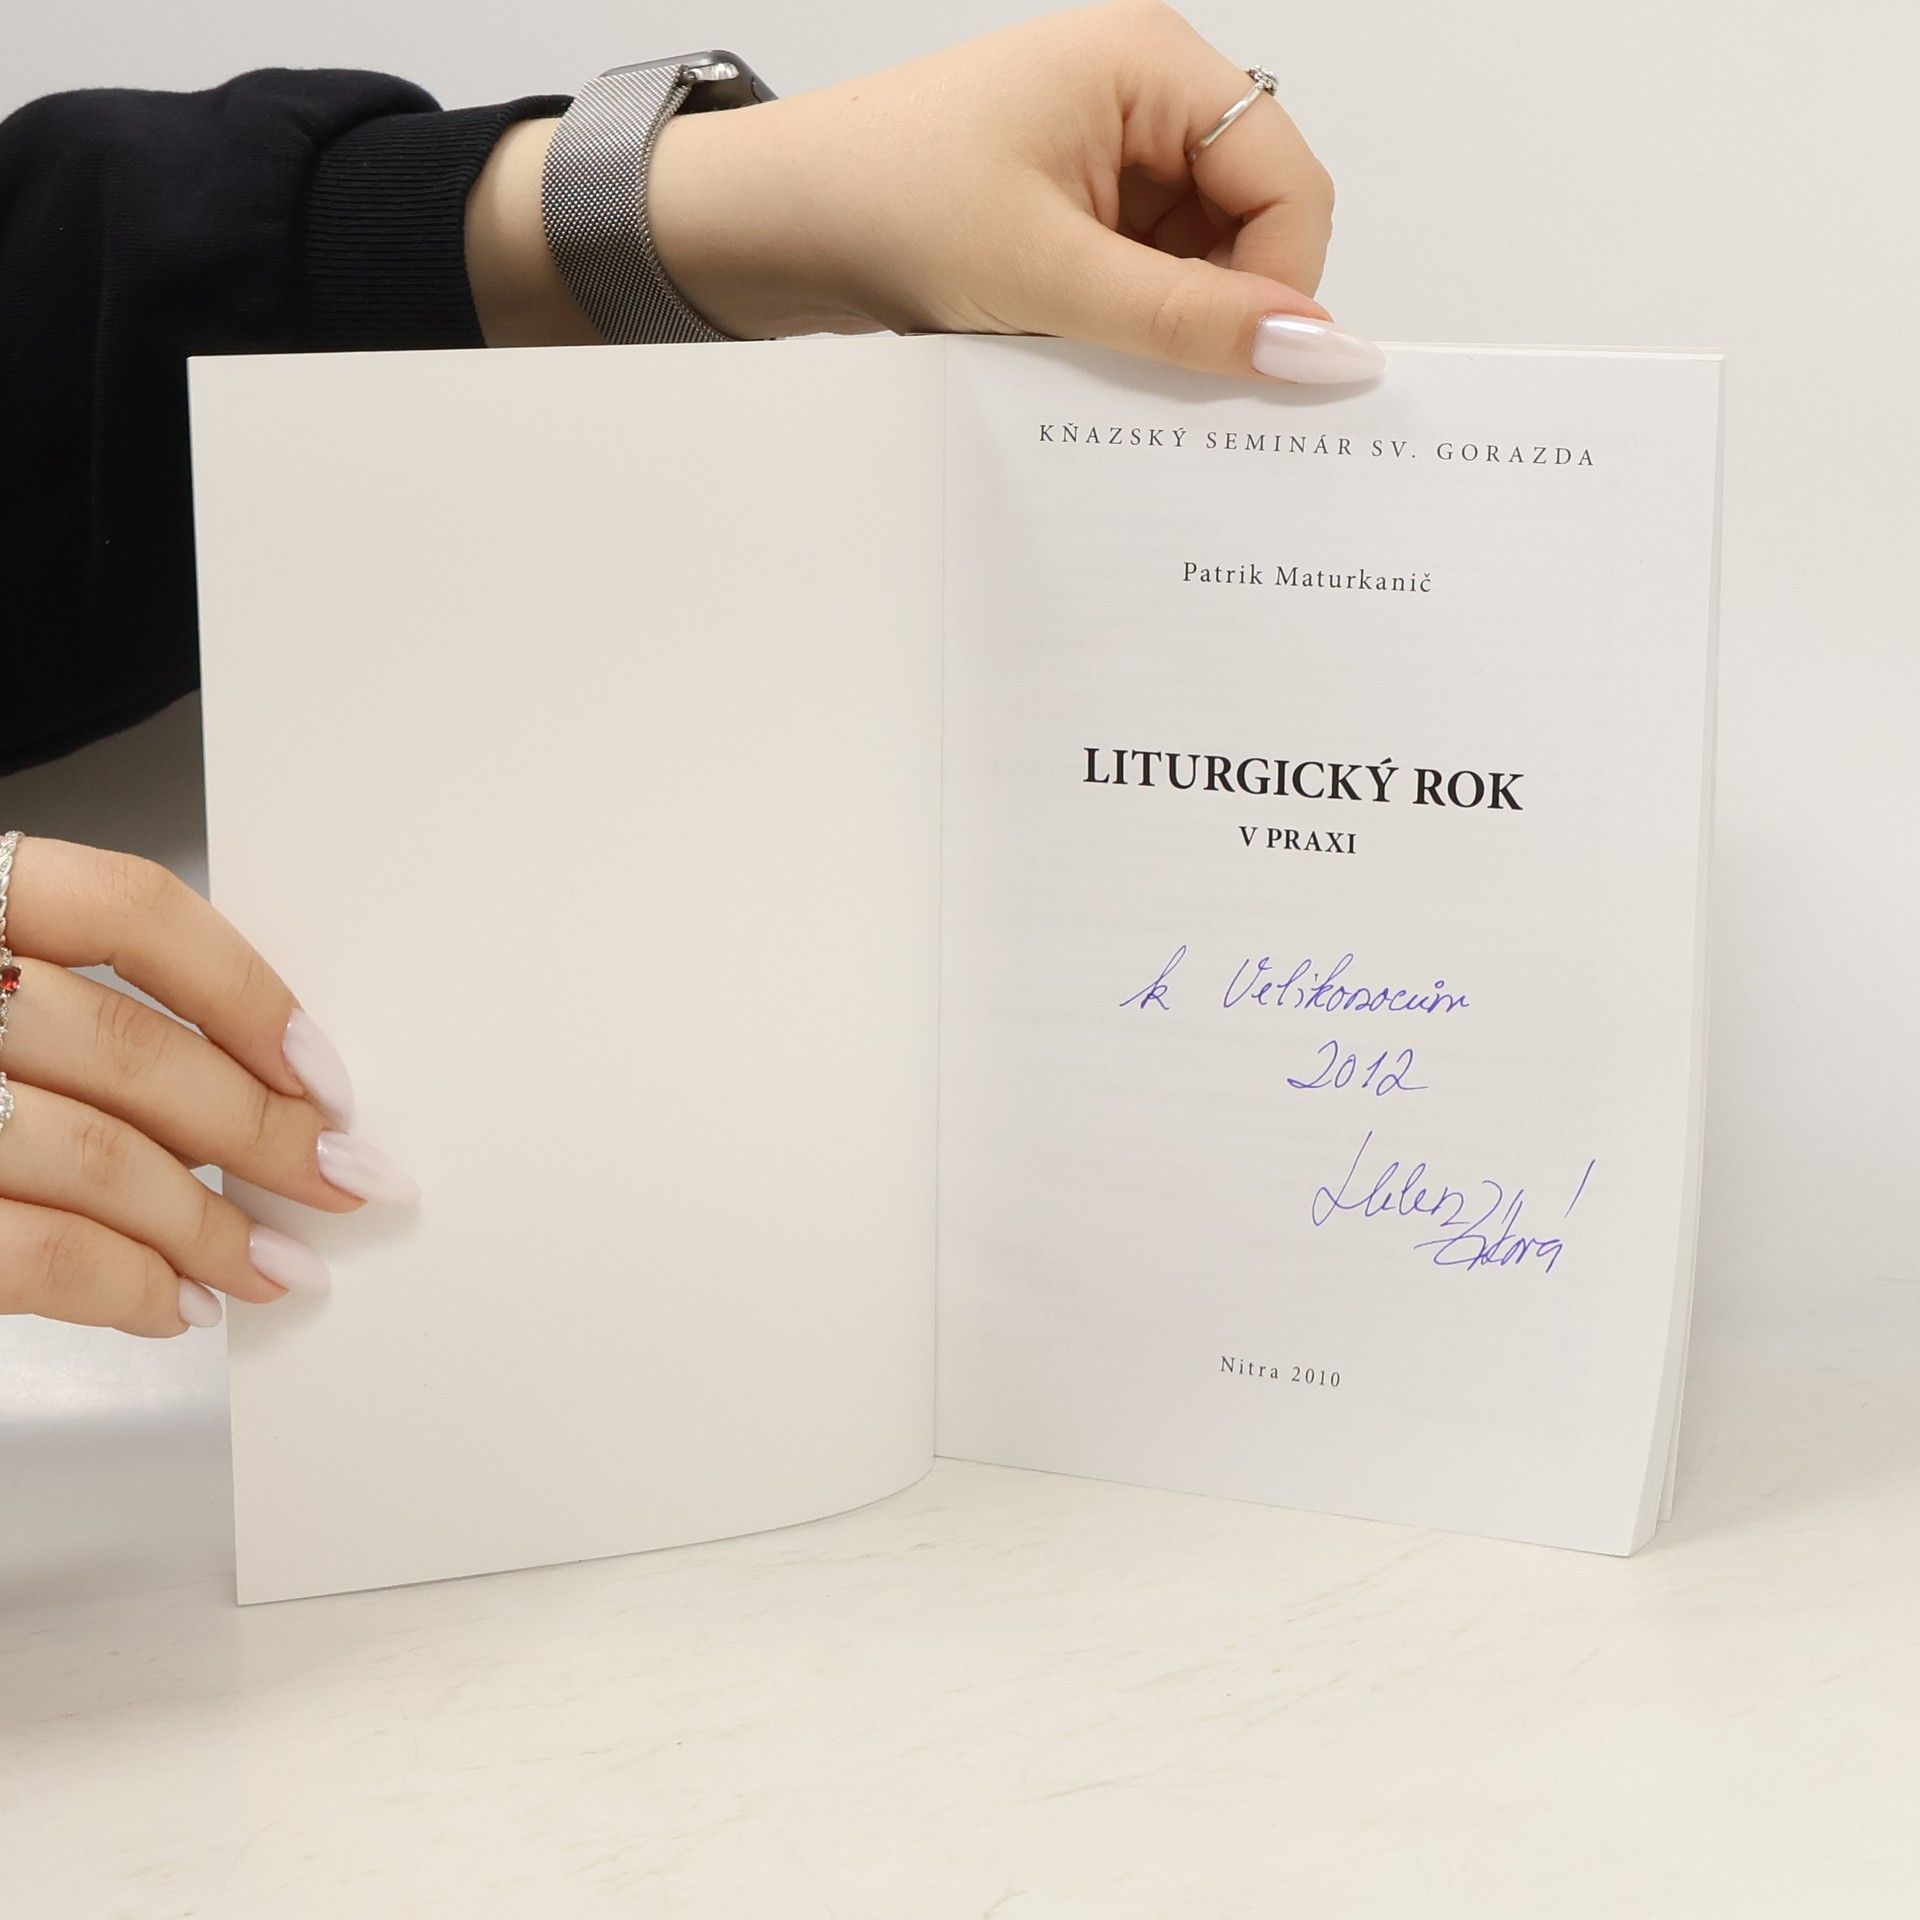 KŇAZSKÝ SEMINÁR SV. GORAZDA
Patrik Maturkanič
LITURGICKÝ ROK
V PRAXI
k Velikonocům
2012
Nitra 2010